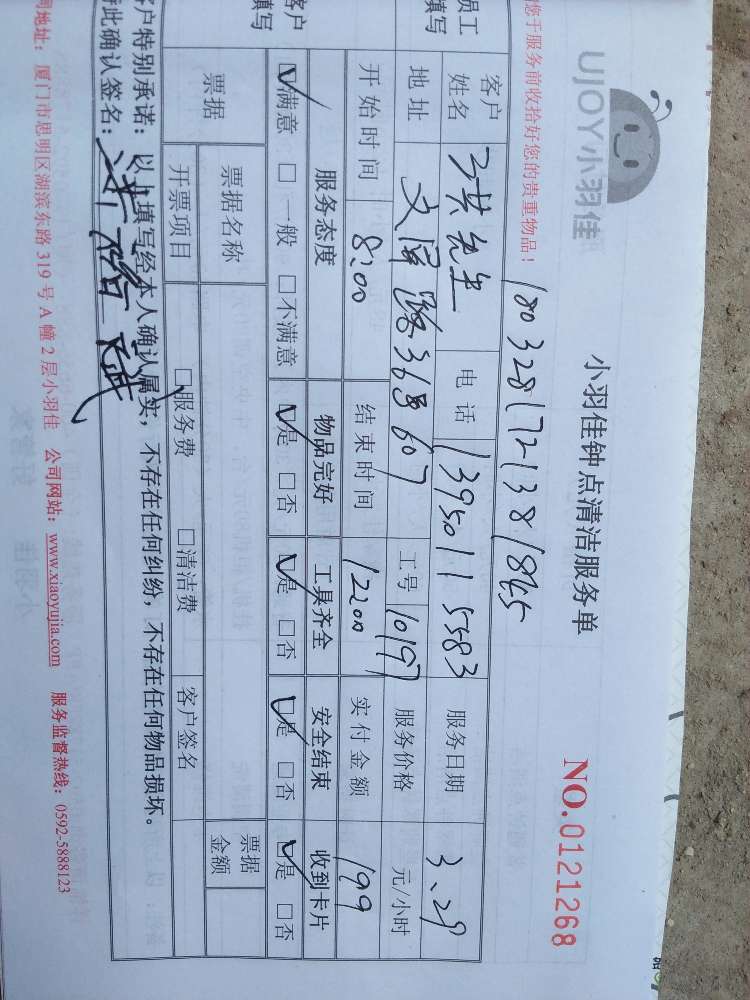 UJOY小羽佳
小羽佳钟点清洁服务单
NO.0121268
您于服务前收拾好您的贵重物品！
1803281721381845
员工填写
客户姓名 洪先生 电话 13950115583 服务日期 3.29
地址 文园路36号607 工号 10197 服务价格 元/小时
开始时间 8:00 结束时间 12:00 实付金额 199
客户填写
服务态度 物品完好 工具齐全 安全结束 收到卡片
☑满意 □一般 □不满意 ☑是 □否 ☑是 □否 ☑是 □否 ☑是 □否
票据 票据名称 票据金额
开票项目 □服务费 □清洁费 客户签名
客户特别承诺：以上填写经本人确认属实，不存在任何纠纷，不存在任何物品损坏。
此确认签名：
地址：厦门市思明区湖滨东路319号A幢2层小羽佳 公司网站：www.xiaoyujia.com 服务监督热线：0592-5888123